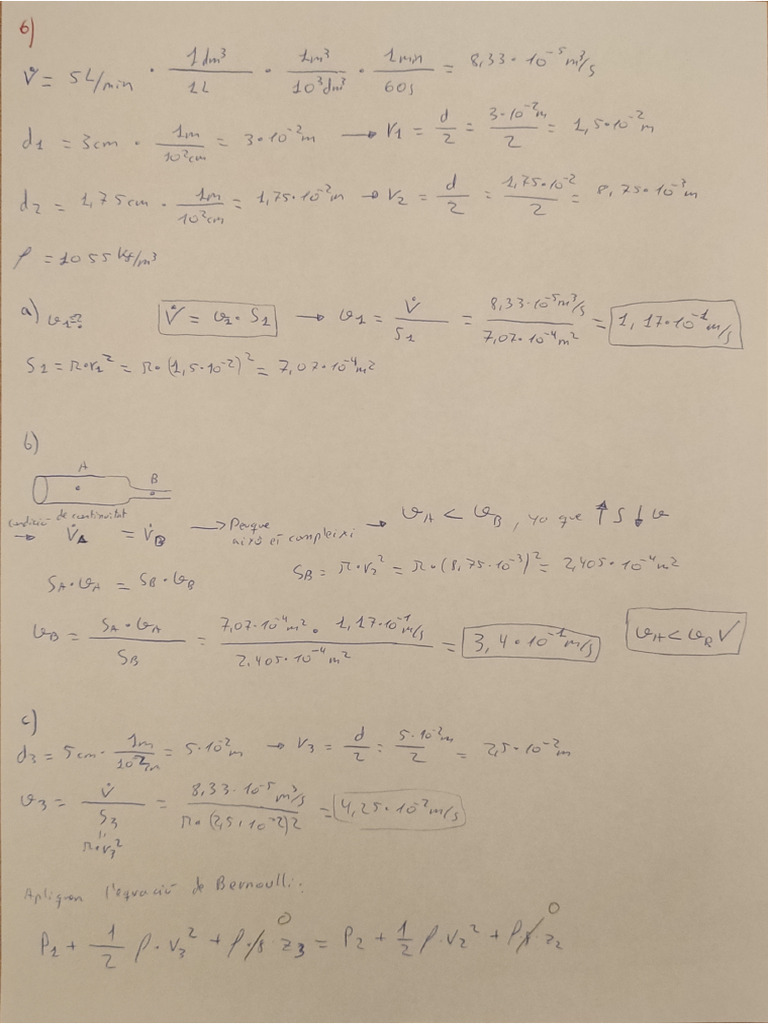 6)
V̇ = 5 L/min · 1 dm³/1 L · 1 m³/10³ dm³ · 1 min/60 s = 8,33·10⁻⁵ m³/s
d1 = 3 cm · 1m/10²cm = 3·10⁻² m → r1 = d/2 = 3·10⁻² m/2 = 1,5·10⁻² m
d2 = 1,75 cm · 1m/10²cm = 1,75·10⁻² m → r2 = d/2 = 1,75·10⁻²/2 = 8,75·10⁻³ m
ρ = 1055 kg/m³
a) v1=? V̇ = v1 · S1 → v1 = V̇/S1 = 8,33·10⁻⁵ m³/s / 7,07·10⁻⁴ m² = 1,17·10⁻¹ m/s
S1 = π·r1² = π·(1,5·10⁻²)² = 7,07·10⁻⁴ m²
b)
A B
condició de continuïtat
→ V̇A = V̇B → Perque això es compleixi → vA < vB, ya que ↑S ↓v
SA·vA = SB·vB SB = π·r2² = π·(8,75·10⁻³)² = 2,405·10⁻⁴ m²
vB = SA·vA/SB = 7,07·10⁻⁴ m² · 1,17·10⁻¹ m/s / 2,405·10⁻⁴ m² = 3,4·10⁻¹ m/s vA < vB ✓
c)
d3 = 5 cm · 1m/10²m = 5·10⁻² m → r3 = d/2 = 5·10⁻² m/2 = 2,5·10⁻² m
v3 = V̇/S3 = 8,33·10⁻⁵ m³/s / π·(2,5·10⁻²)² = 4,25·10⁻² m/s
"
π·r3²
Apliquem l'equació de Bernoulli:
0 0
P1 + 1/2 ρ·v3² + ρ·g·z3 = P2 + 1/2 ρ·v2² + ρ·g·z2